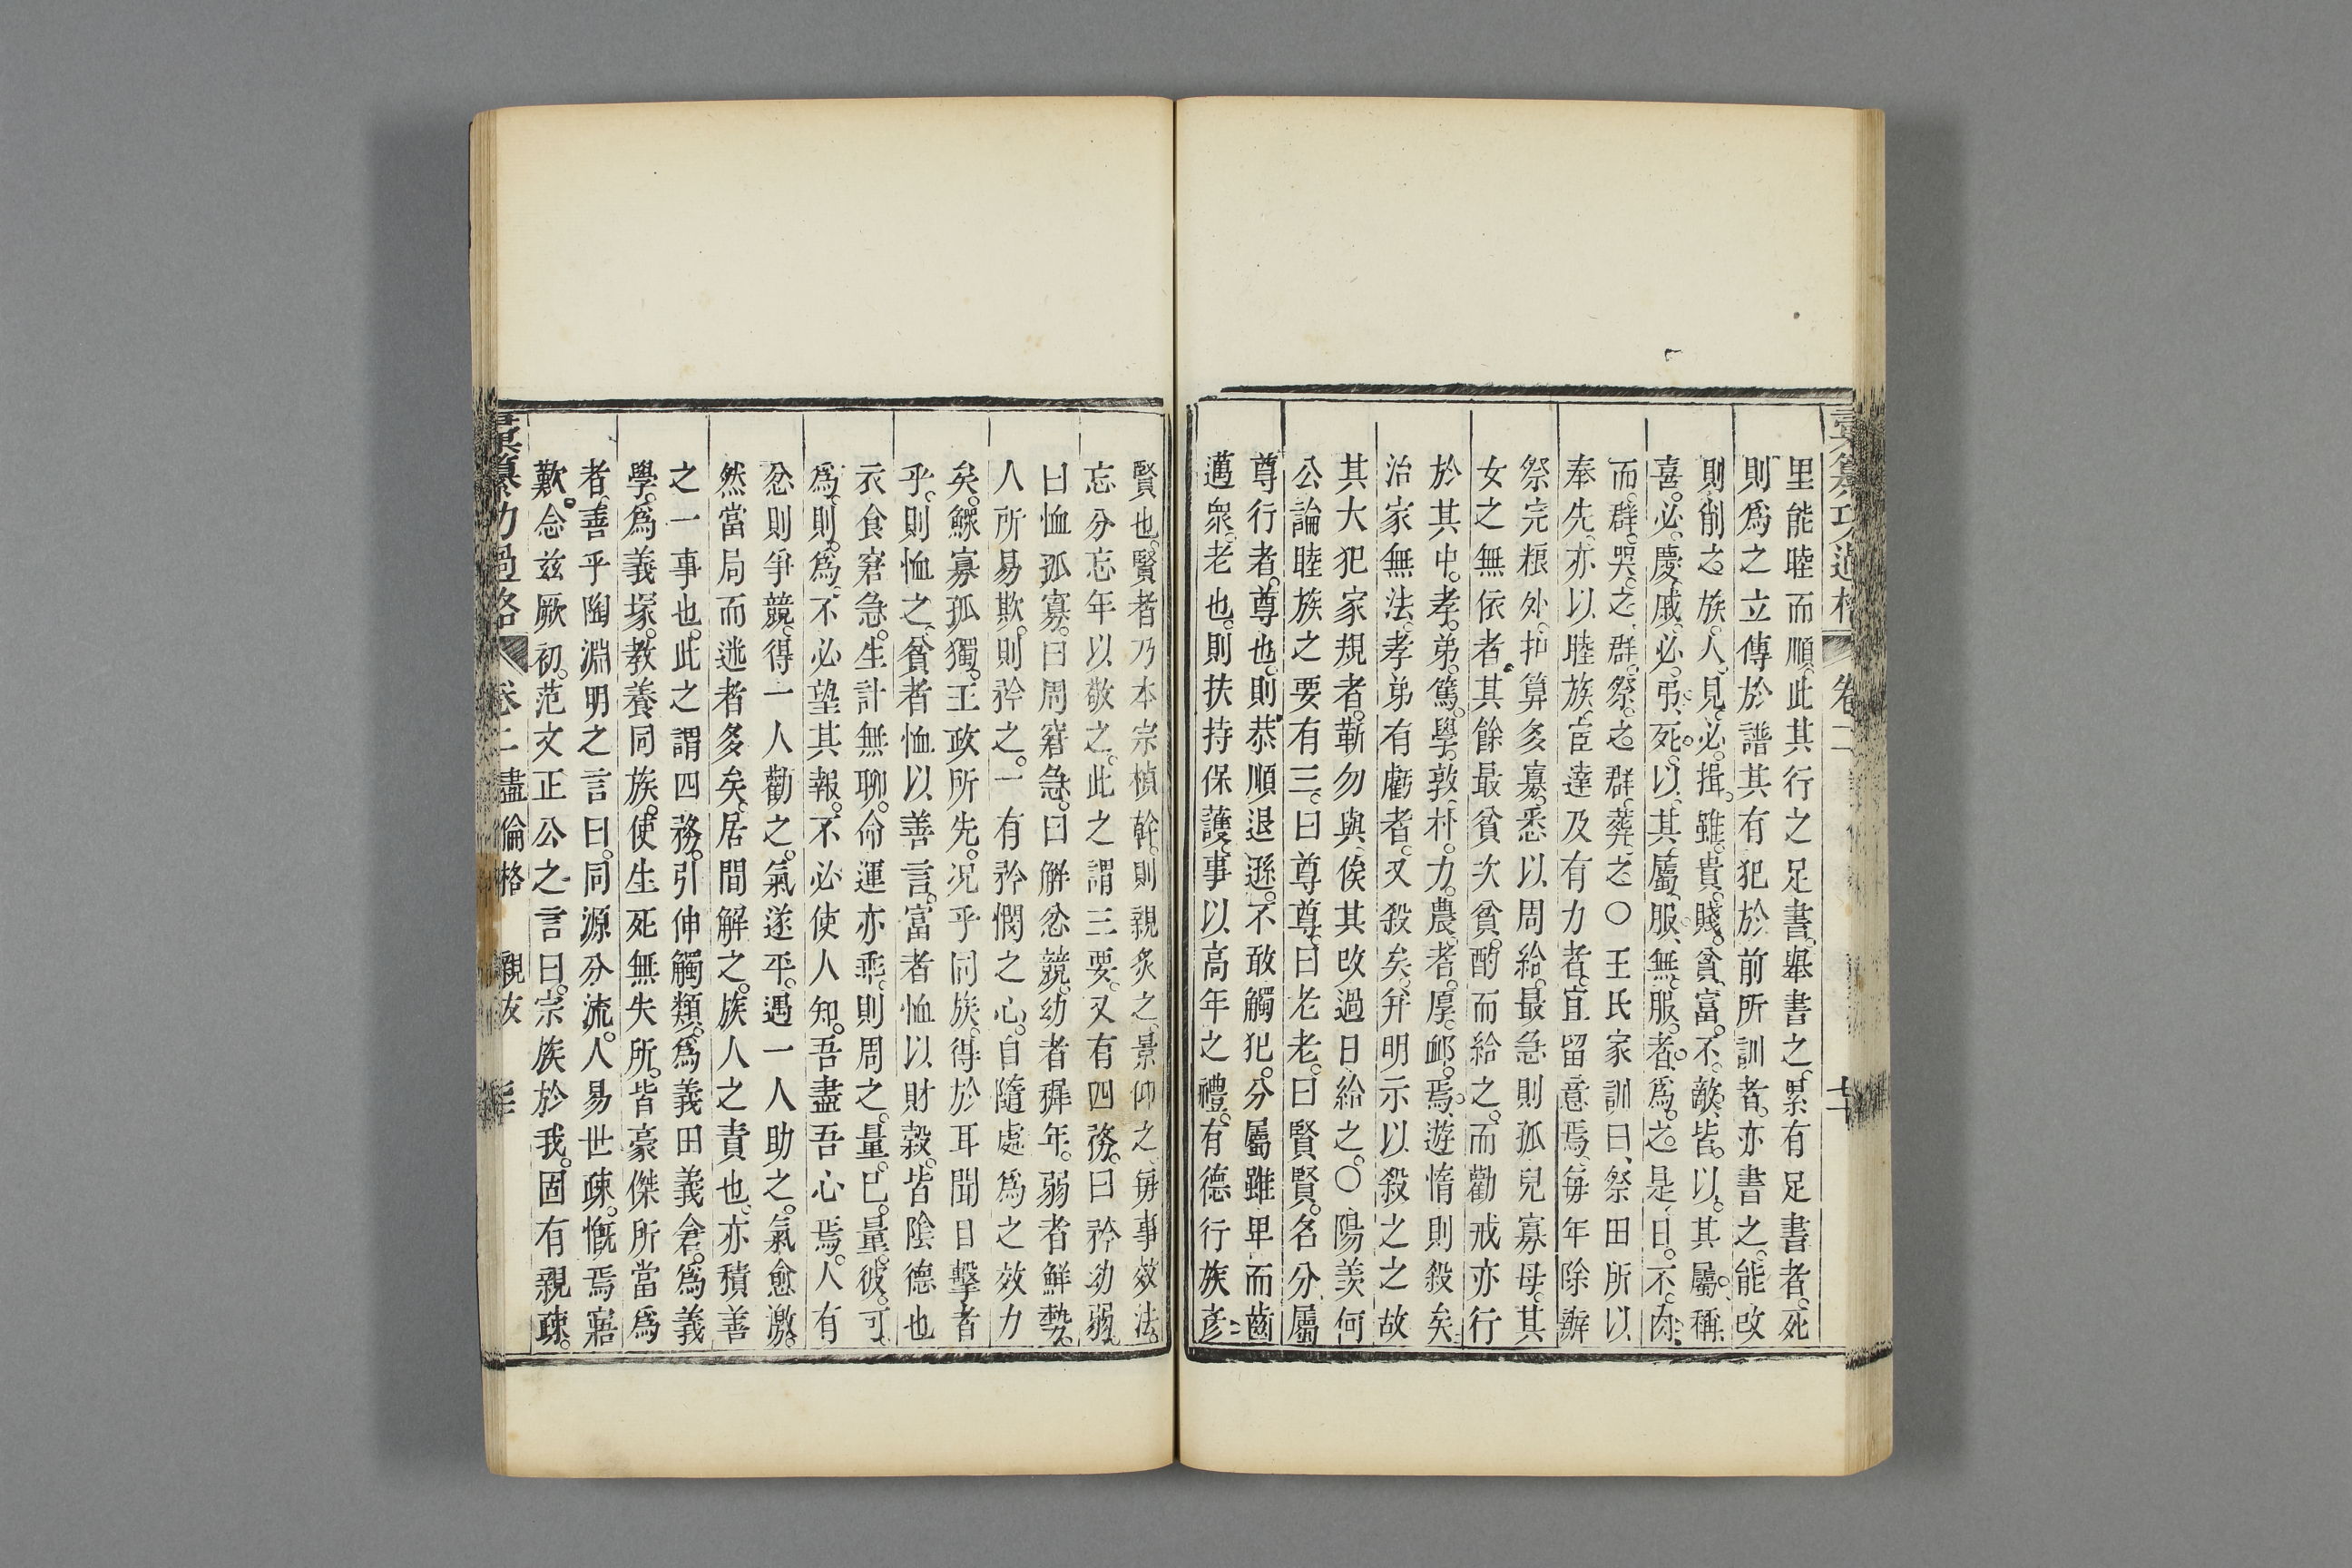 彙纂功過格 卷二 七十
里能睦而順。此其行之足書。舉書之。累有足書者。死
則爲之立傳於譜其有犯於前所訓者。亦書之。能改
則削之族。人。見。必。揖。雖。貴。賤。貧。富。不。敵。皆。以。其屬。稱。
喜。必。慶。戚。必。弔。死。以。其。屬。服。無。服。者。爲。之。是。日。不。肉。
而。群。哭。之。群。祭。之。群。葬。之〇王氏家訓曰祭田所以
奉先。亦以睦族。宦達及有力者。宜留意焉。每年除辦
祭完糧外。扣算多寡。悉以周給。最急則孤兒寡母。其
女之無依者。其餘最貧次貧。酌而給之。而勸戒亦行
於其中。孝。弟。篤。學。敦。朴。力。農。者。厚。邺。焉。遊惰則殺矣
治家無法。孝弟有虧者。又殺矣。弁明示以殺之之故
其大犯家規者。靳勿與俟其改過日給之。〇陽羨何
公論睦族之要有三。曰尊尊。曰老老。曰賢賢。名分屬
尊行者。尊也。則恭順退遜。不敢觸犯。分屬雖卑而齒
邁衆。老也。則扶持保護。事以高年之禮。有德行族彥
賢也。賢者乃本宗楨幹。則親炙之。景仰之。每事效法。
忘分忘年以敬之。此之謂三要。又有四務。曰矜幼弱。
曰恤孤寡。曰周窘急。曰解忿競。幼者穉年。弱者鮮勢。
人所易欺。則矜之。一有矜憫之心。自隨處爲之效力
矣。鰥寡孤獨。王政所先。况乎同族。得於耳聞目擊者
乎。則恤之。貧者恤以善言。富者恤以財穀。皆陰德也
衣食窘急。生計無聊。命運亦乖。則周之。量。已。量。彼。可
爲。則。爲。不必望其報。不必使人知。吾盡吾心焉。人有
忿則爭競。得一人勸之。氣遂平。遇一人助之。氣愈激。
然當局而迷者多矣。居間解之。族人之責也。亦積善
之一事也。此之謂四務。引伸觸類。爲義田義倉。爲義
學。爲義塚。教養同族。使生死無失所。皆豪傑所當爲
者。善乎陶淵明之言曰。同源分流。人易世疎。慨焉寤
歎。念兹厥初。范文正公之言曰。宗族於我。固有親疎。
彙纂功過格 卷二 盡倫格 親友